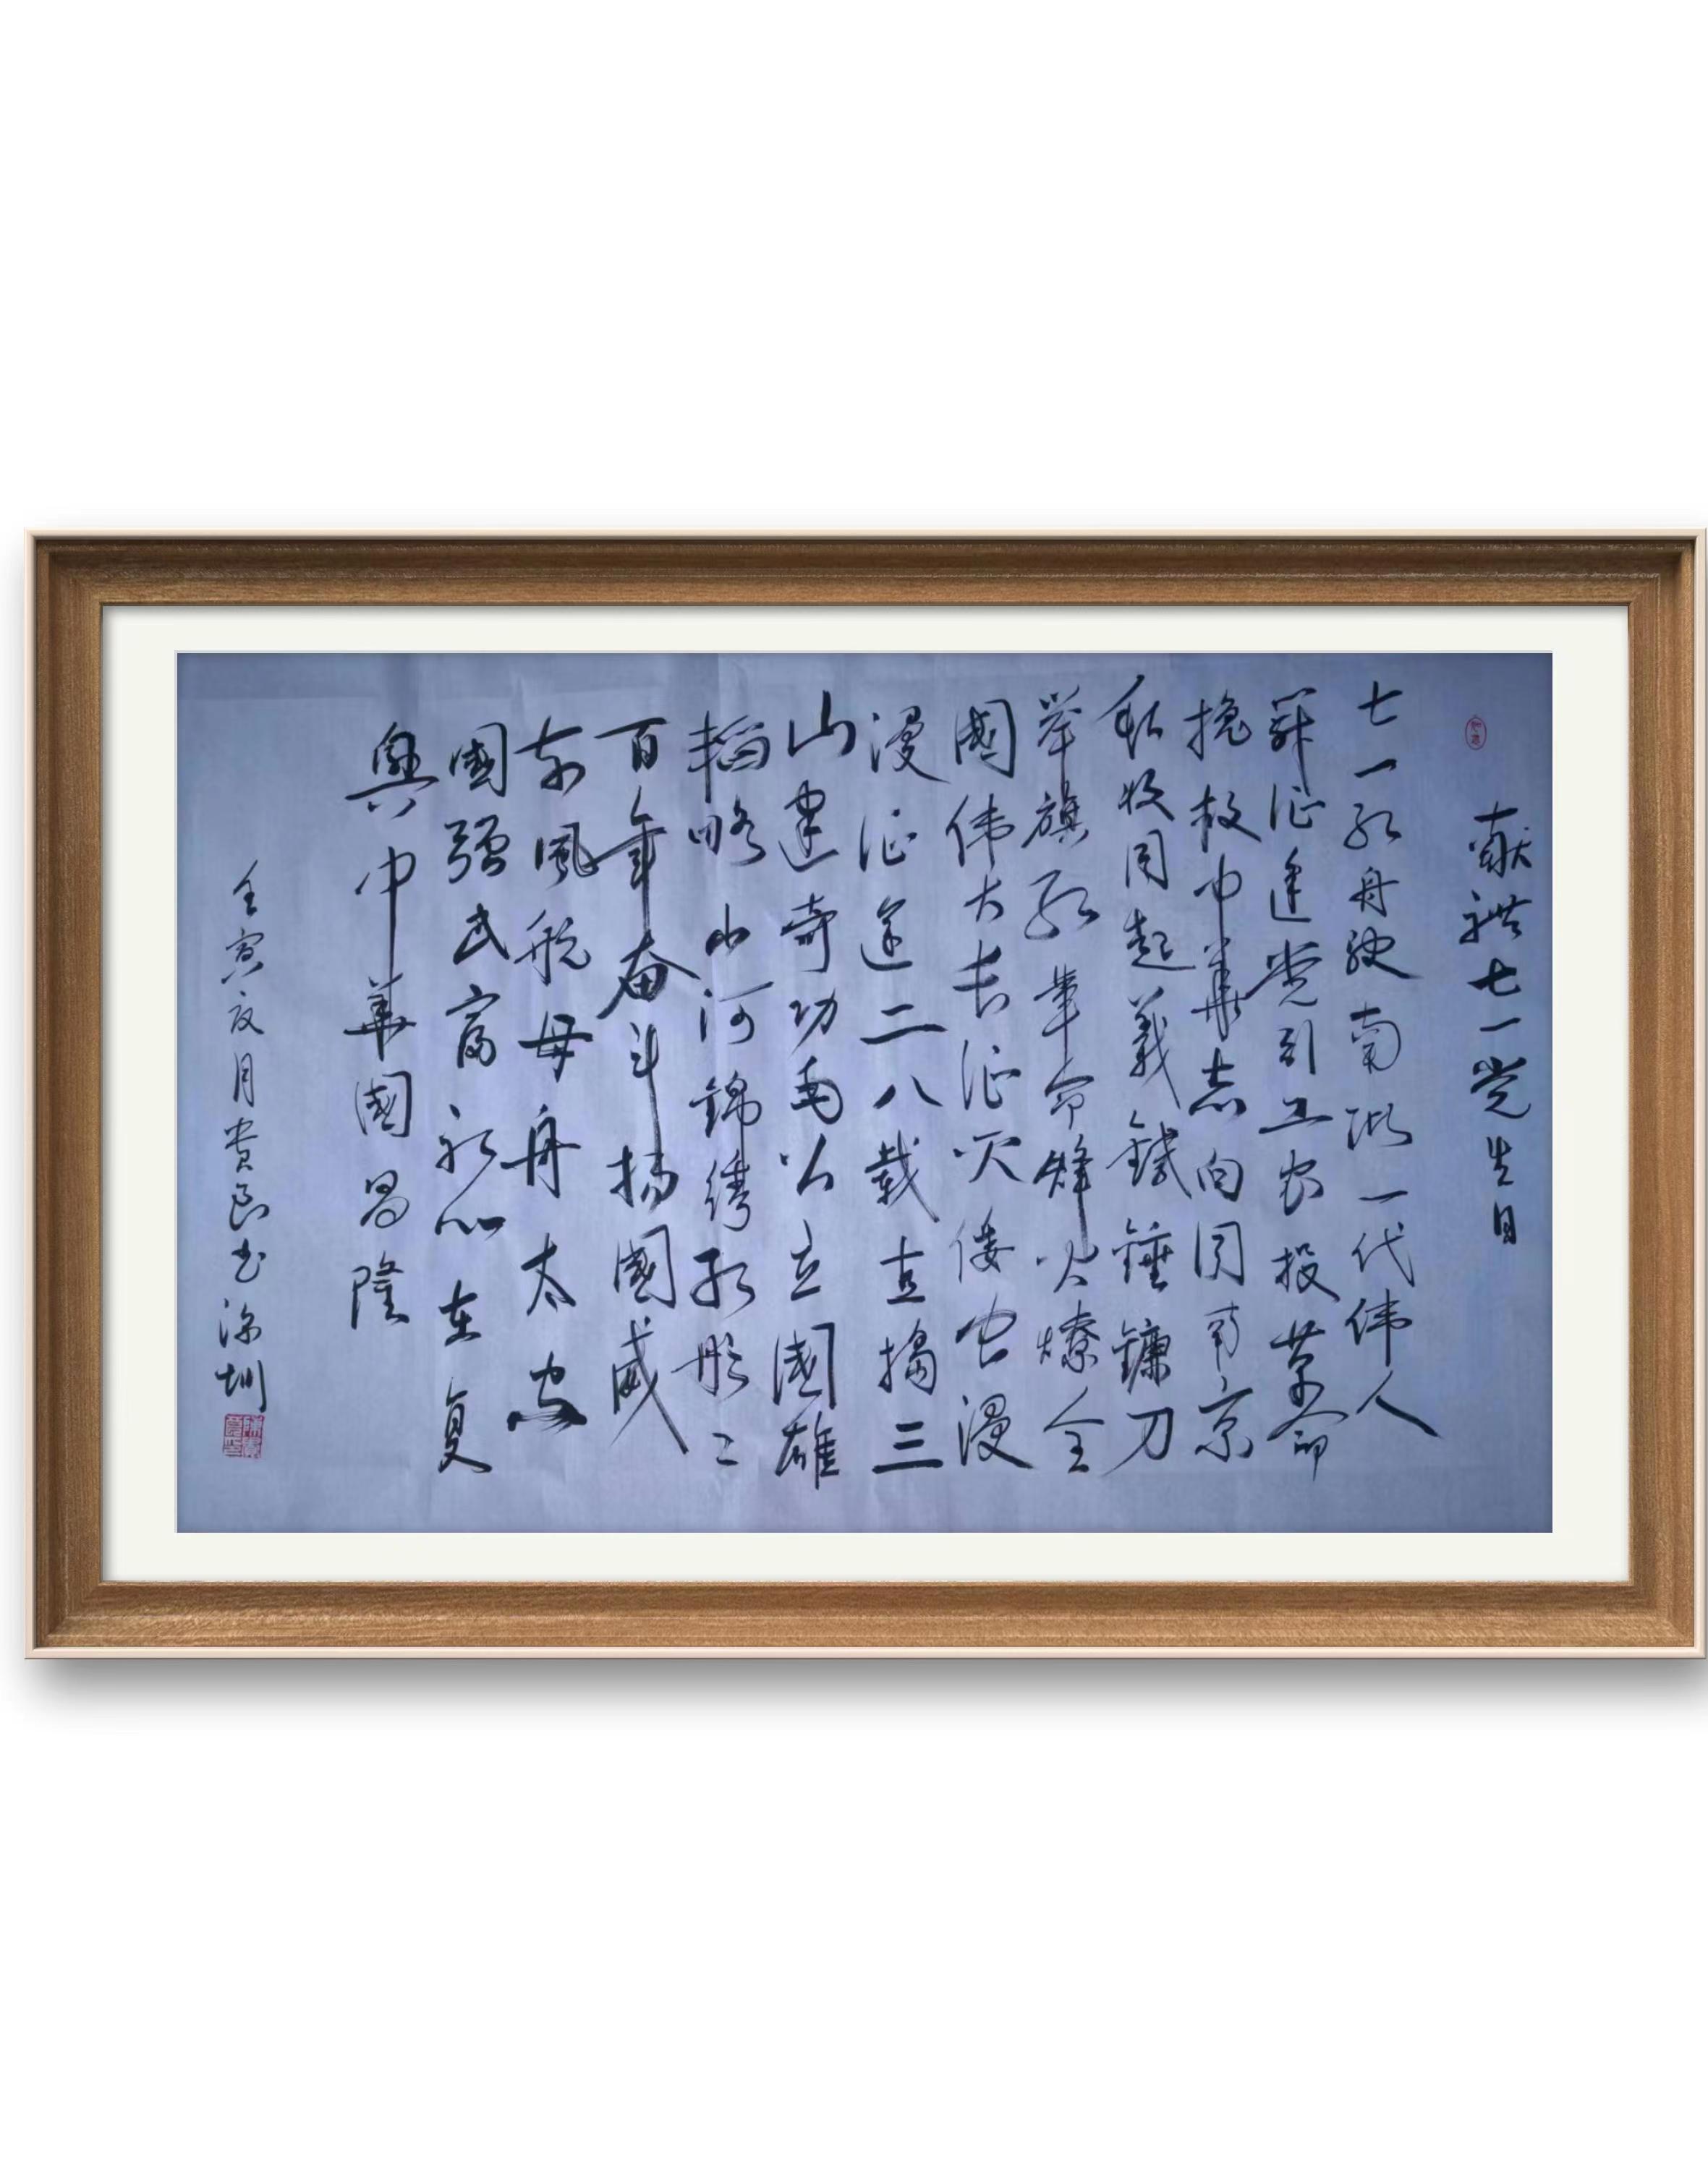 献礼七一党生日
七一红舟驶南湖一代伟人
辟征逢党引工农投革命
挽救中华志向同南京
牧同起義鐵錘鐮刀
举旗红军命烽火燎全
國伟大长征灭倭寇漫
漫征途二八载直捣三
山建奇功毛公立國雄
韬略山河錦绣红彤二
百年奋斗扬國威
东風航母舟太空
國强民富初心在复
興中華國昌隆
壬寅夏月贵良书深圳